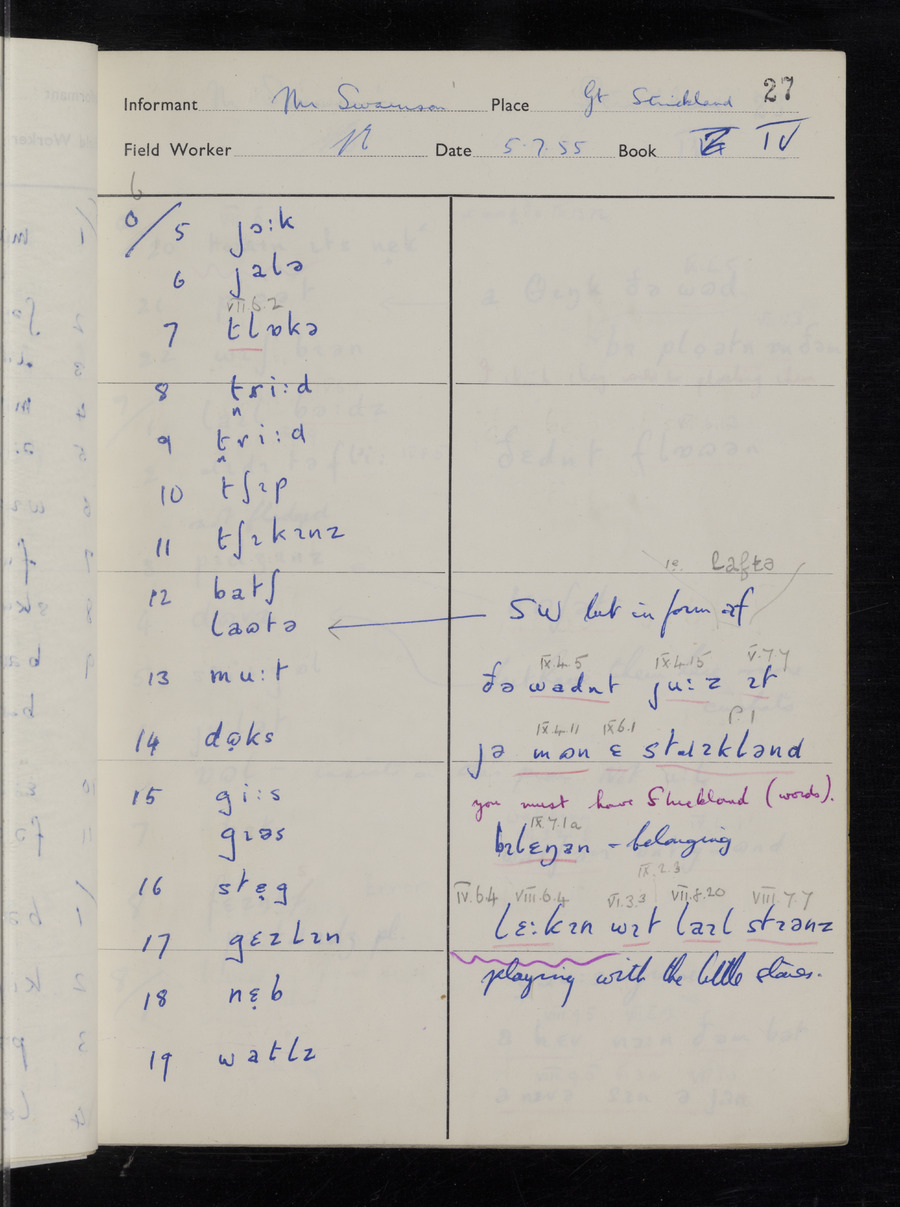 27
Informant Mr Swainson Place Gt Strickland
Field Worker Date 5.7.55 Book IV
6
0/5 jɔ:k
6 jalə
VII.6.2
7 tlɒkə
8 tri:d
9 tri:d
10 tʃɪp
11 tʃɪkɪnz
12 batʃ
laʊtə ← SW but in form of
ie. laftə
13 mu:t
14 dʊ̣ks
15 gi:s
gɪəs
16 stẹg
17 gɛzlɪn
18 nɛ̣b
19 watlz
IX.4.5 IX.4.15 V.7.7
ðə wadnt ju:z ɪt
IX.4.11 IX.6.1 P.1
jə mən ɛ stɹɪkland
you must have Strickland (words).
IX.7.1a
bɪlɛŋən - belonging
IX.2.3
IV.6.4 VIII.6.4 VI.3.3 VII.8.20 VIII.7.7
lɛ:kɪn wɪt laɪl stɪənz
playing with the little stones.